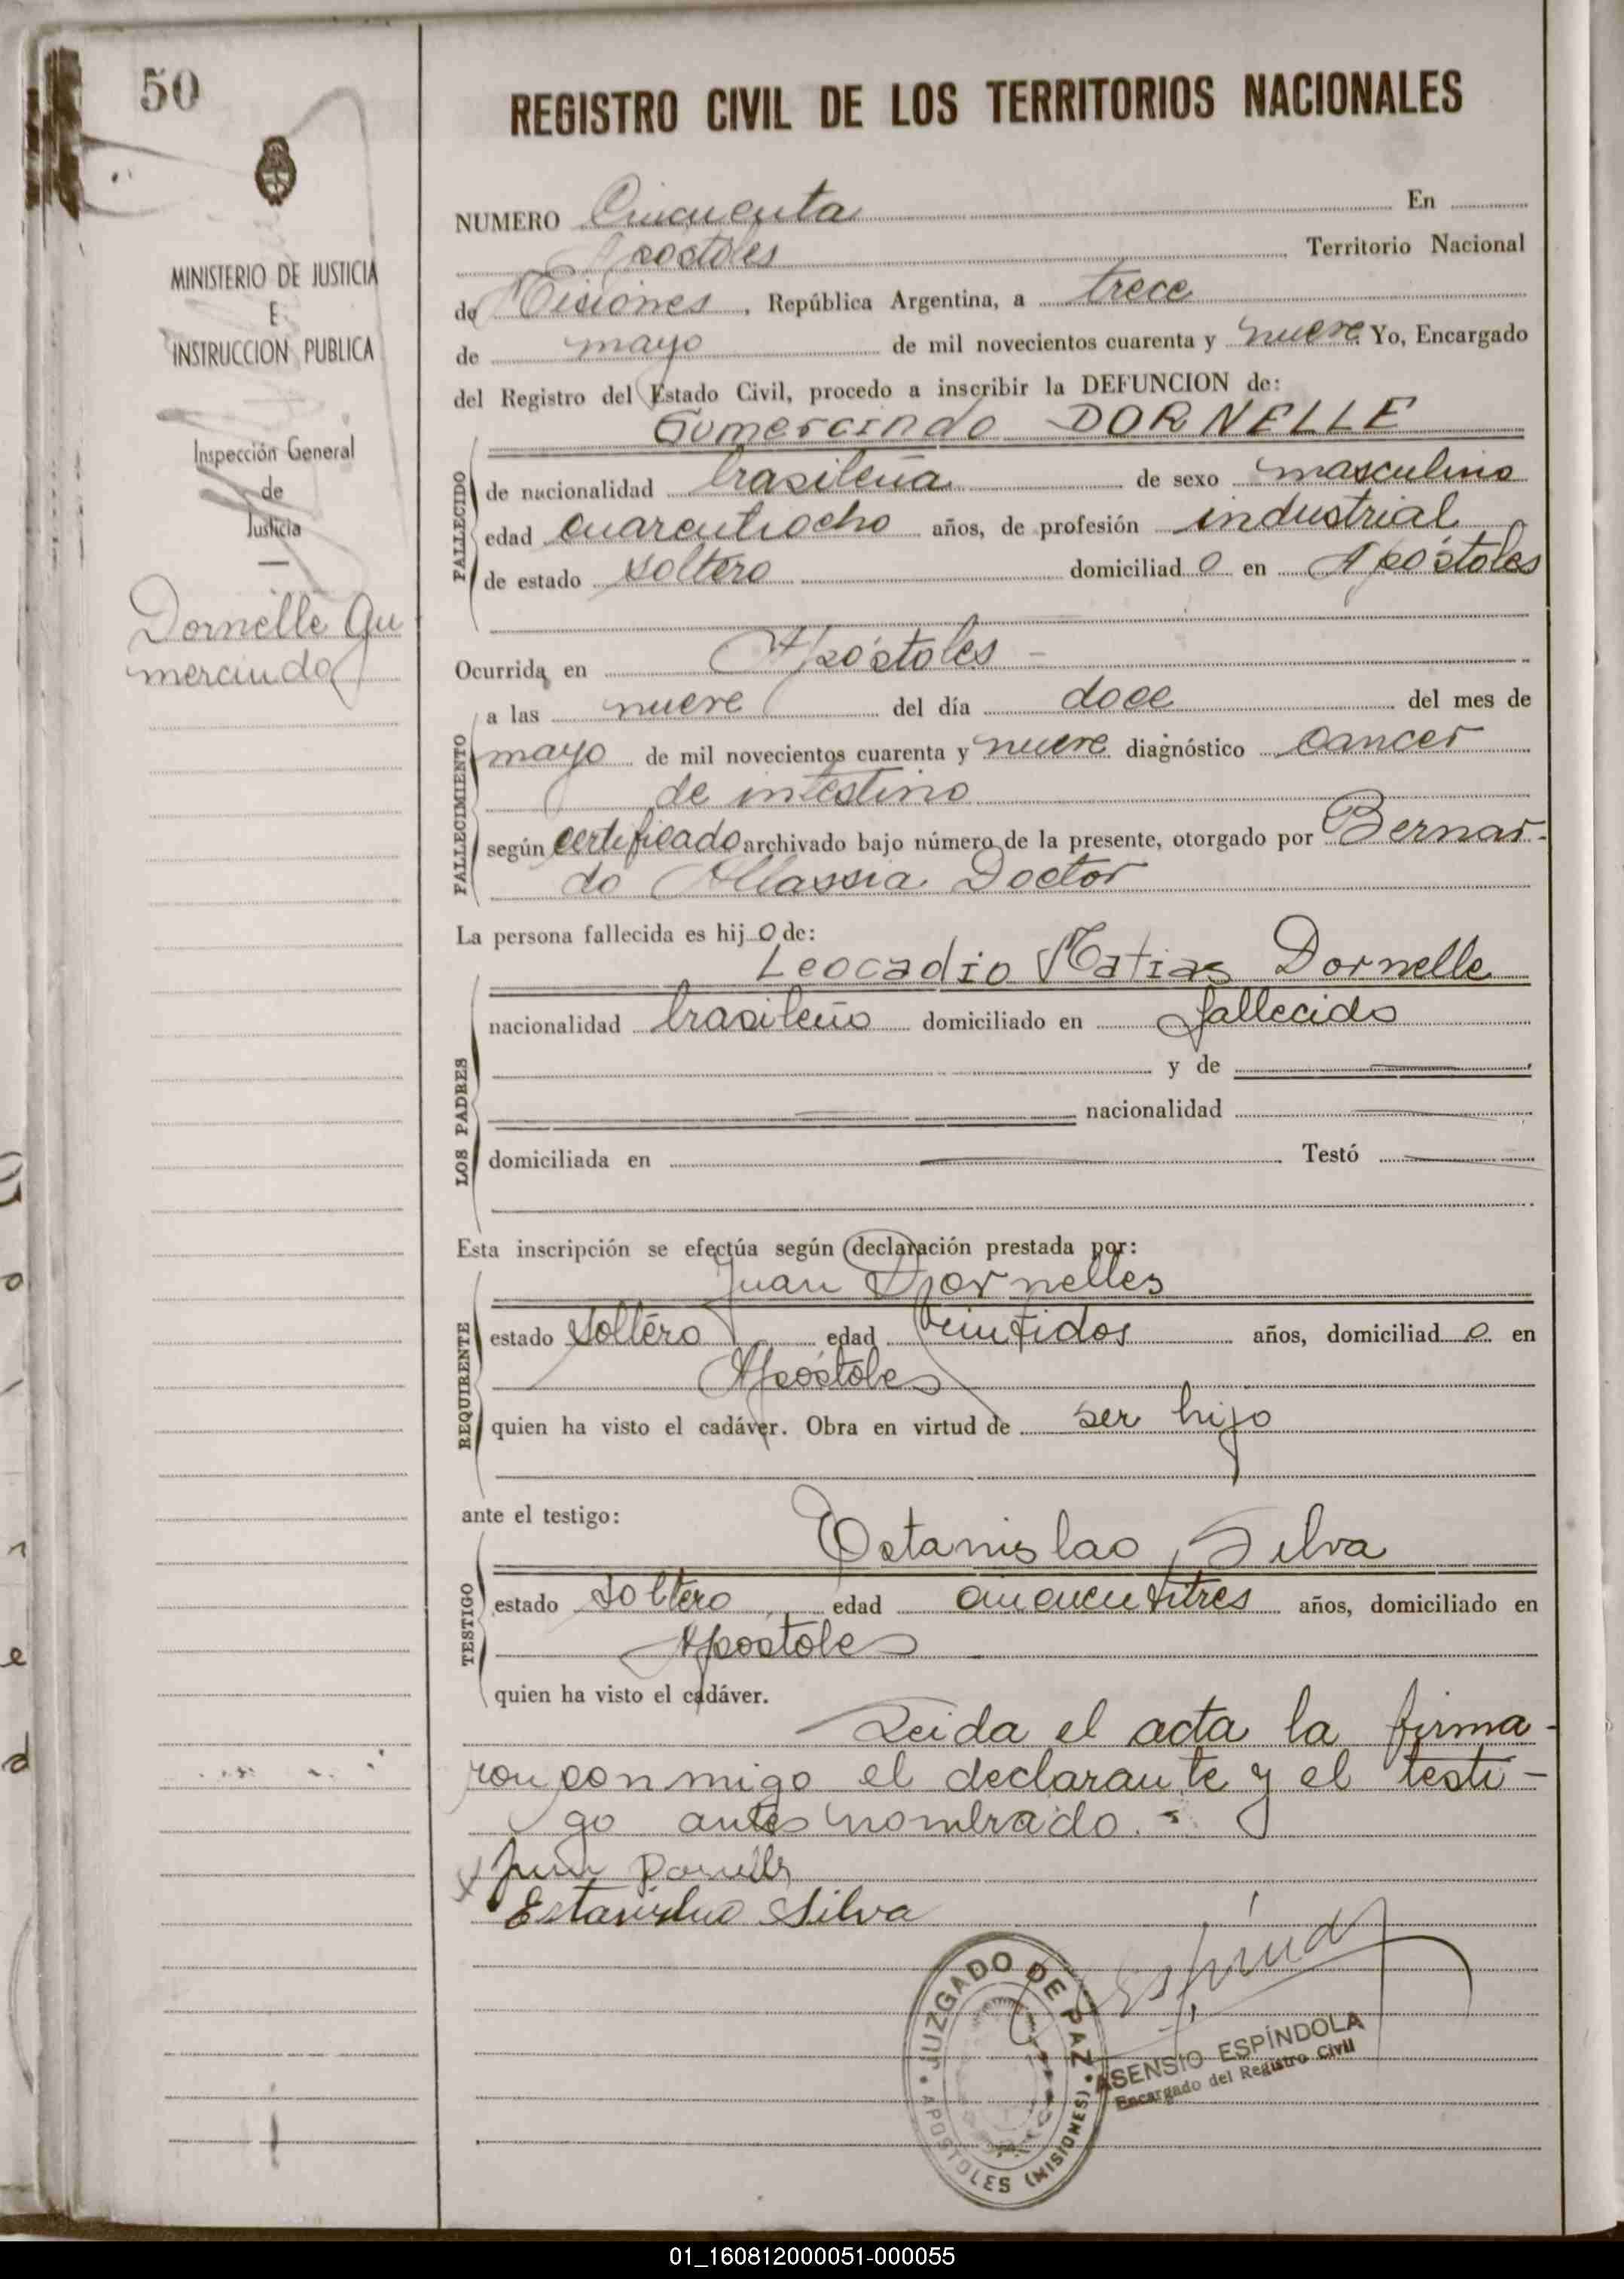 50
MINISTERIO DE JUSTICIA
E
INSTRUCCION PUBLICA
Inspección General
de
Justicia
Dornelle Gu
mercindo
REGISTRO CIVIL DE LOS TERRITORIOS NACIONALES
NUMERO Cincuenta En
Apostoles Territorio Nacional
de Misiones, República Argentina, a trece
de mayo de mil novecientos cuarenta y nueve Yo, Encargado
del Registro del Estado Civil, procedo a inscribir la DEFUNCION de:
Gumercindo DORNELLE
FALLECIDO
de nacionalidad brasileña de sexo masculino
edad cuarentiocho años, de profesión industrial
de estado soltero domiciliad o en Apóstoles
Ocurrida en Apóstoles -
FALLECIMIENTO
a las nueve del día doce del mes de
mayo de mil novecientos cuarenta y nueve diagnóstico cancer
de intestino
según certificado archivado bajo número de la presente, otorgado por Bernar-
do Allassia Doctor
La persona fallecida es hij o de:
Leocadio Matias Dornelle
LOS PADRES
nacionalidad brasileño domiciliado en fallecido
y de
nacionalidad
domiciliada en Testó
Esta inscripción se efectúa según declaración prestada por:
Juan Dornelles
REQUIRENTE
estado soltero edad veintidos años, domiciliad o en
Apóstoles
quien ha visto el cadáver. Obra en virtud de ser hijo
ante el testigo:
Estanislao Silva
TESTIGO
estado soltero edad cincuentitres años, domiciliado en
Apostoles
quien ha visto el cadáver.
Leida el acta la firma-
ron conmigo el declarante y el testi-
go antes nombrado.-
Juan Dornelles
Estanislao Silva
Espíndola
JUZGADO DE PAZ
APOSTOLES (MISIONES)
ASENSIO ESPÍNDOLA
Encargado del Registro Civil
01_160812000051-000055